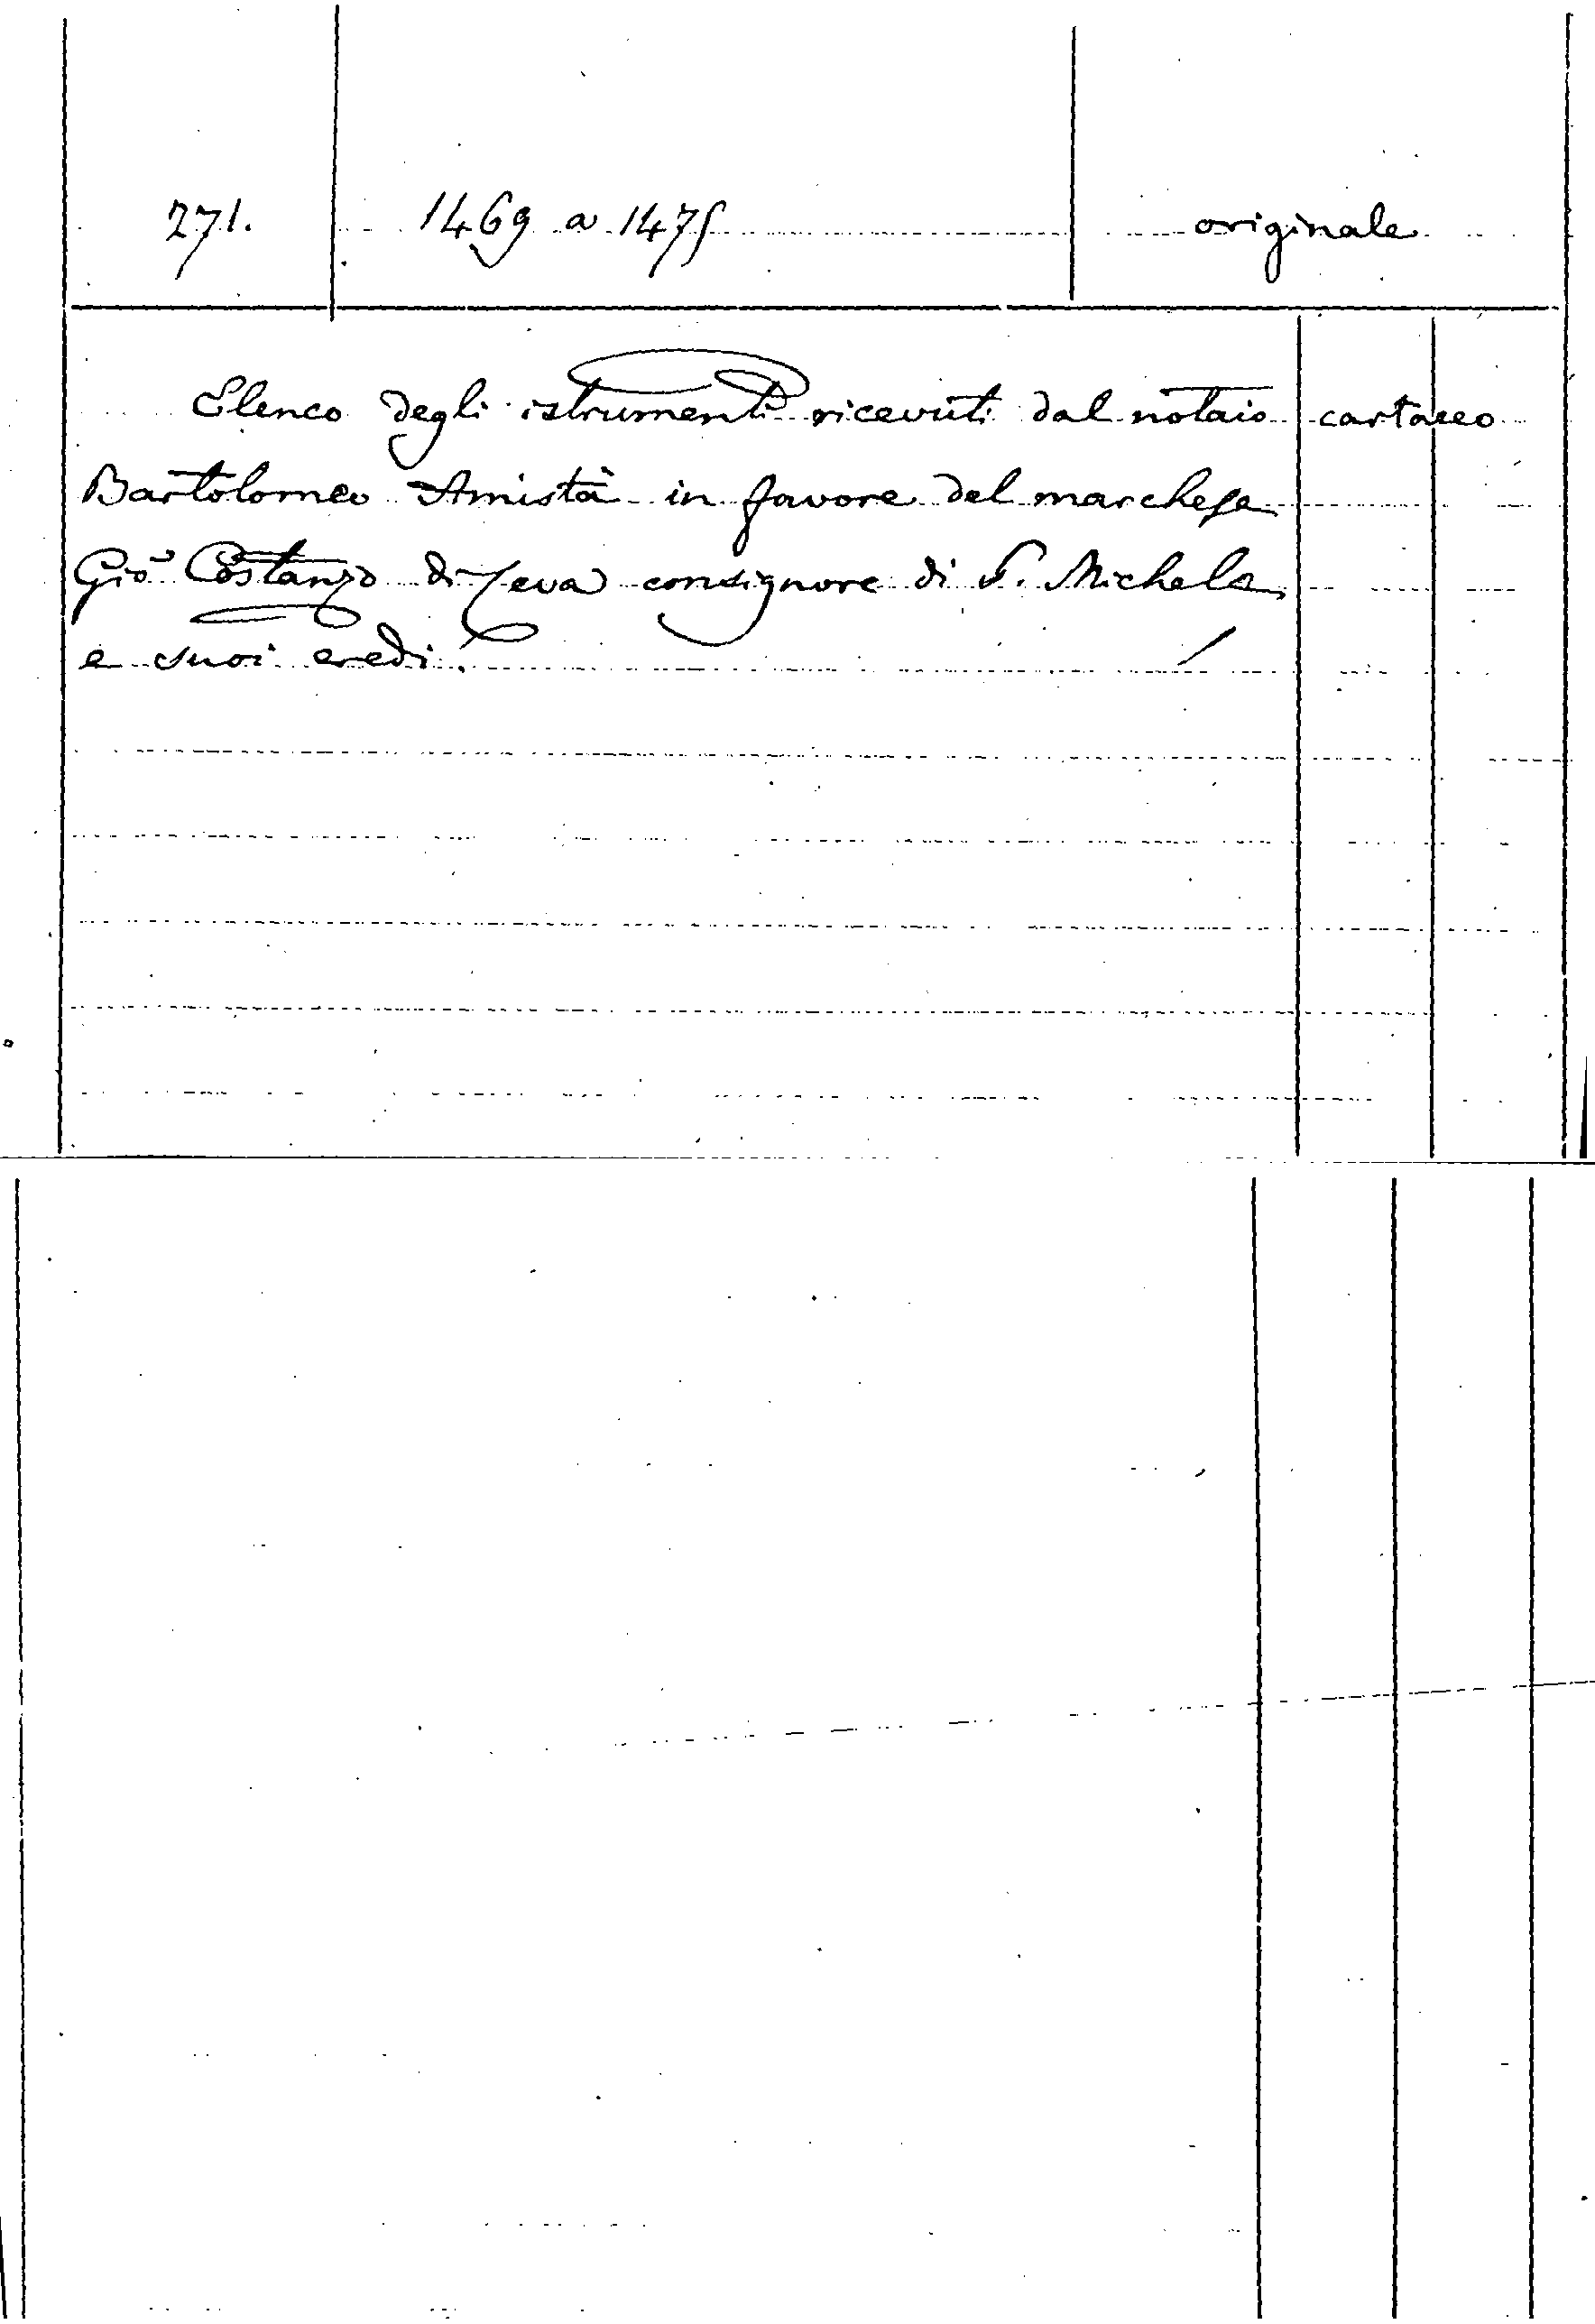 271. 1469 a 1475 originale
Elenco degli istrumenti ricevuti dal notaio cartaceo
Bartolomeo Amistà in favore del marchese
Gio Costanzo di Ceva consignore di S. Michele
e suoi eredi.